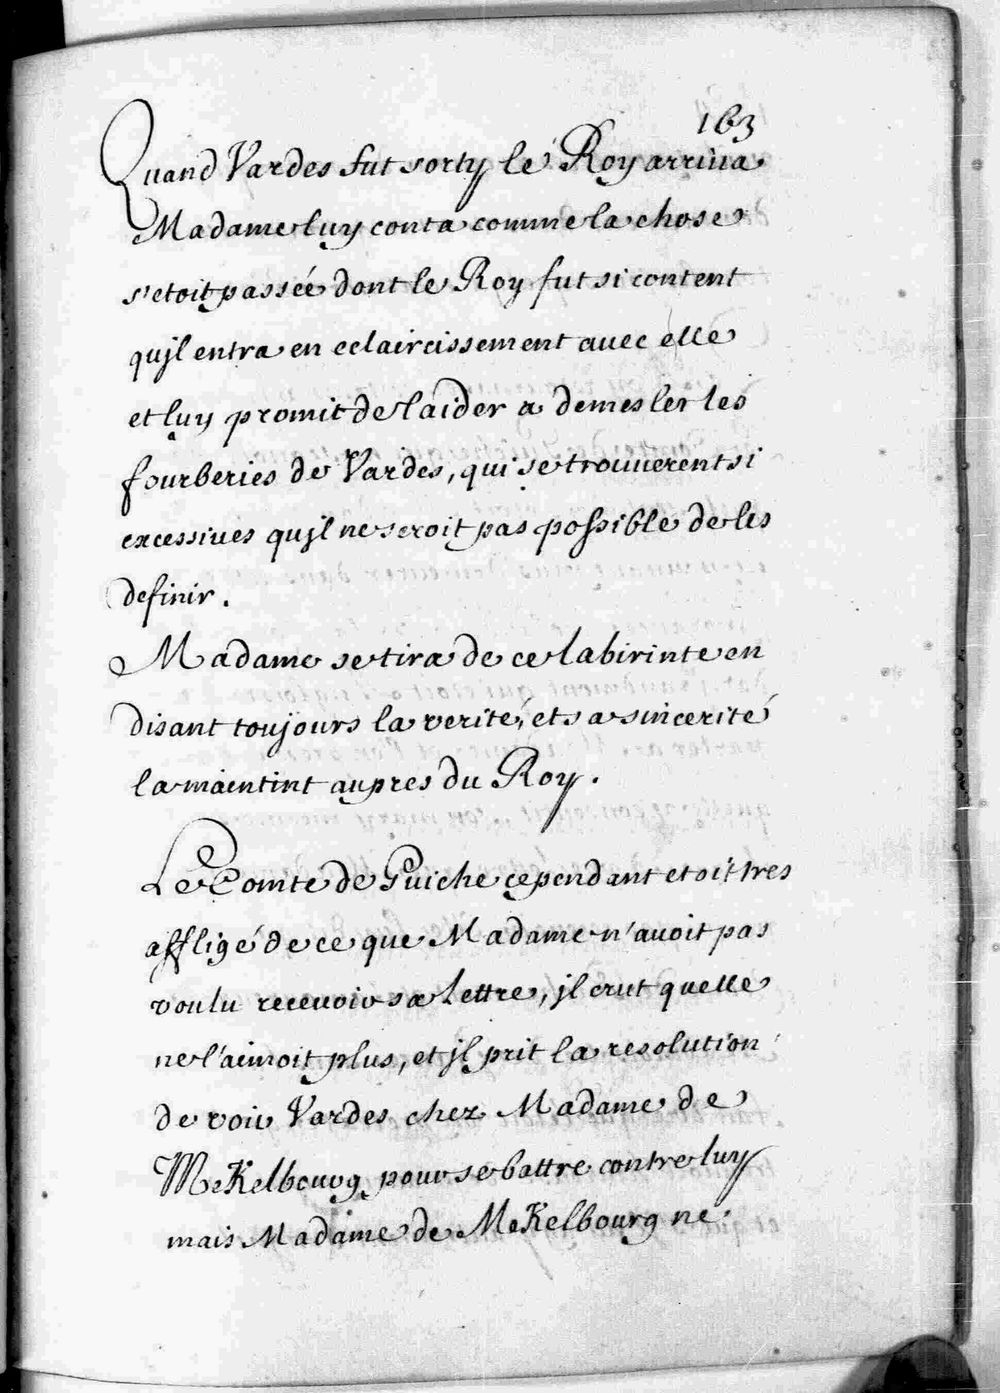 163
Quand Vardes fut sorty le Roy arriua
Madame luy conta comme la chose
s'etoit passée dont le Roy fut si content
qujl entra en eclaircissement auec elle
et luy promit de laider a demesler les
fourberies de Vardes, qui se trouuerent si
excessiues qujl ne seroit pas possible de les
definir.
Madame se tira de ce labirinte en
disant toujours la verité, et sa sincerité
la maintint aupres du Roy.
Le Comte de Guiche cependant etoit tres
affligé de ce que Madame n'auoit pas
voulu receuoir sa lettre, jl crut quelle
ne l'aimoit plus, et jl prit la resolution
de voir Vardes chez Madame de
MeKelbourg pour se battre contre luy
mais Madame de MeKelbourg ne